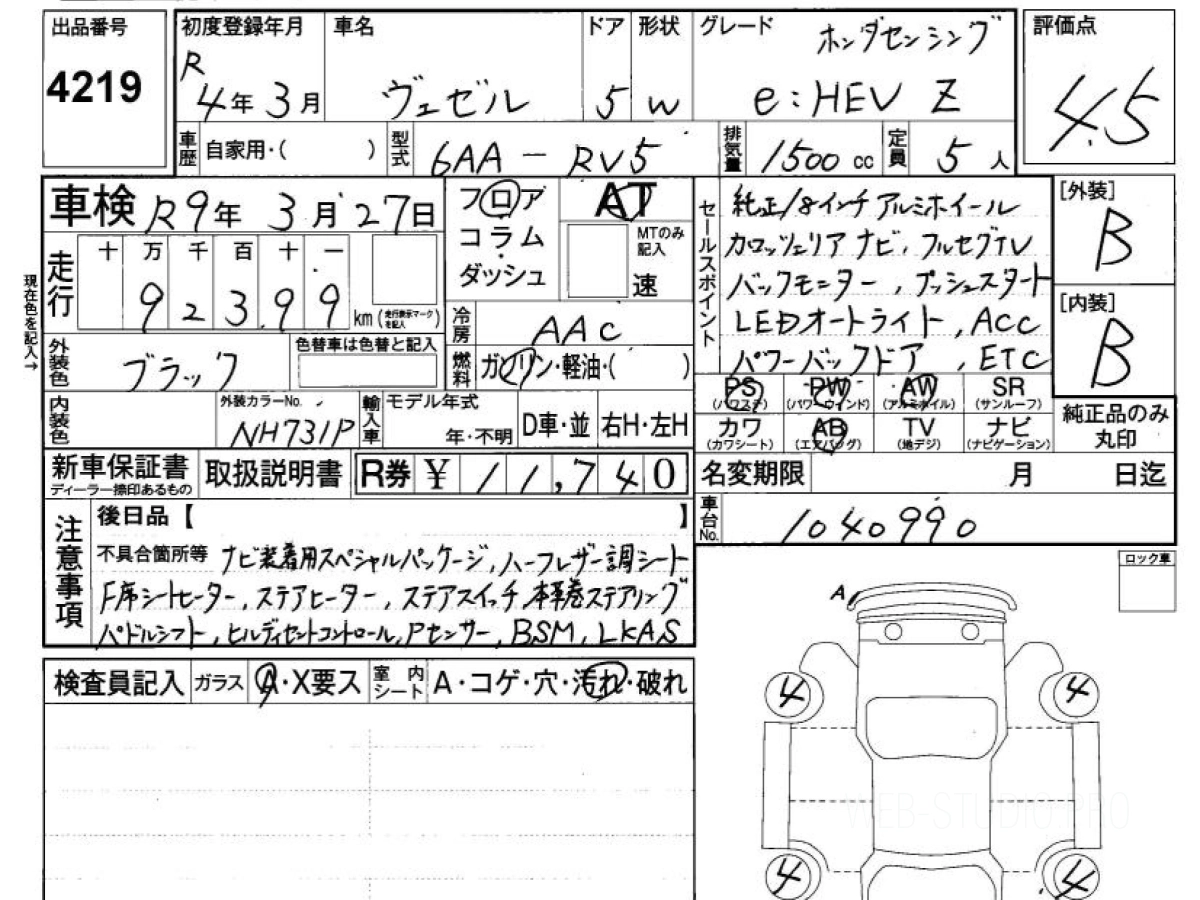 出品番号
4219
初度登録年月
R
4年3月
車名
ヴェゼル
ドア
5
形状
W
グレード
ホンダセンシング
e:HEV Z
評価点
4.5
車歴
自家用・( )
型式
6AA-RV5
排気量
1500 cc
定員
5人
車検 R9年3月27日
フロア
コラム
ダッシュ
AT
MTのみ記入
速
セールスポイント
純正18インチアルミホイール
カロッツェリアナビ、フルセグTV
バックモニター、プッシュスタート
LEDオートライト、ACC
パワーバックドア、ETC
[外装]
B
[内装]
B
現在色を記入→
走行
十 万 千 百 十 一
9 2 3 9 9
km (走行表示マークを記入)
冷房
AAC
外装色
ブラック
色替車は色替と記入
燃料
ガソリン・軽油・( )
PS (パワステ) PW (パワーウインド) AW (アルミホイル) SR (サンルーフ)
カワ (カワシート) AB (エアバッグ) TV (地デジ) ナビ (ナビゲーション)
純正品のみ
丸印
内装色
外装カラーNo.
NH731P
輸入車
モデル年式
年・不明
D車・並
右H・左H
新車保証書
ディーラー捺印あるもの
取扱説明書
R券 ¥ 11,740
名変期限 月 日迄
車台No.
1040990
注意事項
後日品【 】
不具合箇所等 ナビ装着用スペシャルパッケージ、ハーフレザー調シート
F席シートヒーター、ステアヒーター、ステアスイッチ、本革巻ステアリング
パドルシフト、ヒルディセントコントロール、Pセンサー、BSM、LKAS
ロック車
A
検査員記入 ガラス A・X要ス 室内シート A・コゲ・穴・汚れ・破れ
4 4
WEB-STUDIO.PRO
4 4